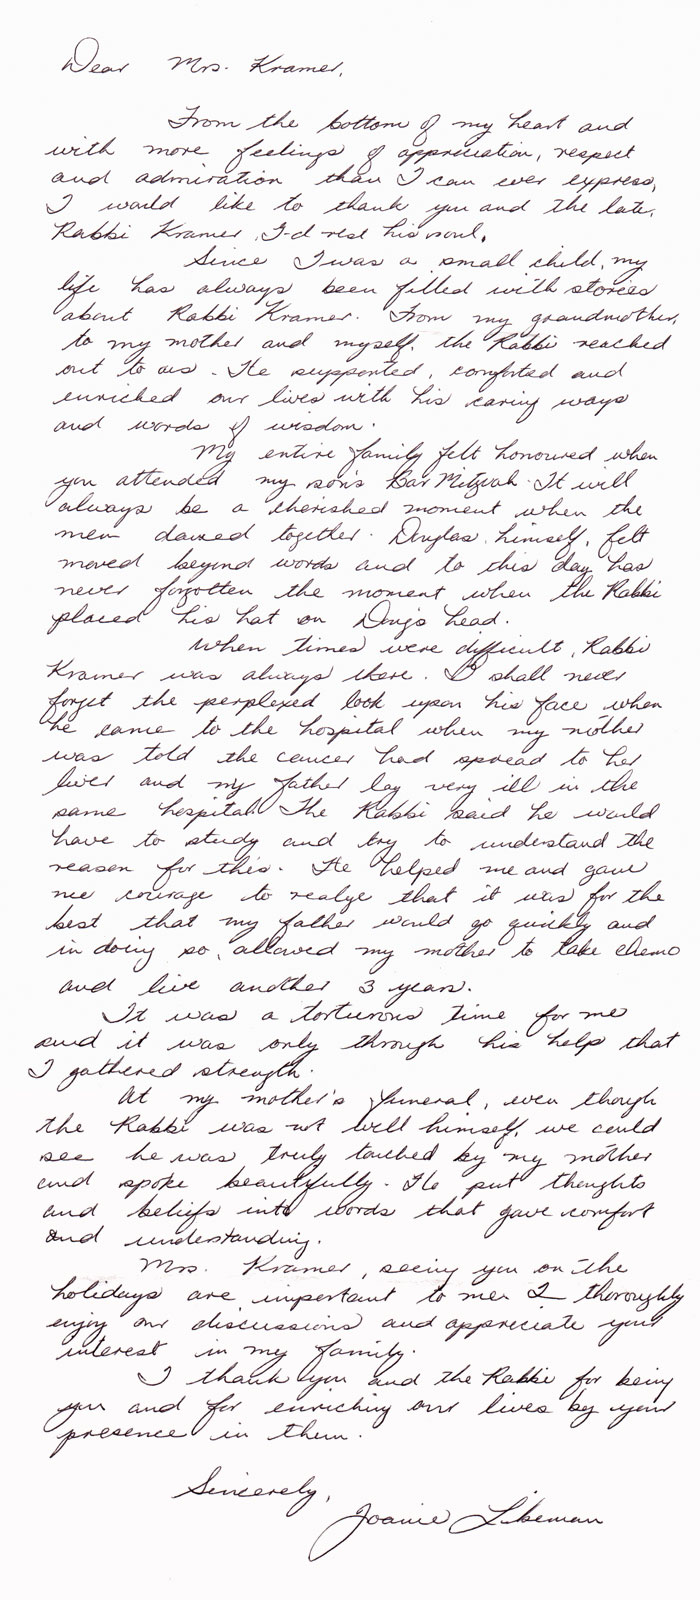 Dear Mrs. Kramer,
From the bottom of my heart and
with more feelings of appreciation, respect
and admiration than I can ever express,
I would like to thank you and the late,
Rabbi Kramer, G-d rest his soul.
Since I was a small child, my
life has always been filled with stories
about Rabbi Kramer. From my grandmother,
to my mother and myself, the Rabbi reached
out to us. He supported, comforted and
enriched our lives with his caring ways
and words of wisdom.
My entire family felt honoured when
you attended my son's Bar Mitzvah. It will
always be a cherished moment when the
men danced together. Douglas, himself, felt
moved beyond words and to this day has
never forgotten the moment when the Rabbi
placed his hat on Doug's head.
When times were difficult, Rabbi
Kramer was always there. I shall never
forget the perplexed look upon his face when
he came to the hospital when my mother
was told the cancer had spread to her
liver and my father lay very ill in the
same hospital. The Rabbi said he would
have to study and try to understand the
reason for this. He helped me and gave
me courage to realize that it was for the
best that my father would go quickly and
in doing so, allowed my mother to take chemo
and live another 3 years.
It was a torturous time for me
and it was only through his help that
I gathered strength.
At my mother's funeral, even though
the Rabbi was not well himself, we could
see he was truly touched by my mother
and spoke beautifully. He put thoughts
and beliefs into words that gave comfort
and understanding.
Mrs. Kramer, seeing you on the
holidays are important to me. I thoroughly
enjoy our discussions and appreciate your
interest in my family.
I thank you and the Rabbi for being
you and for enriching our lives by your
presence in them.
Sincerely,
Joanie Libeman